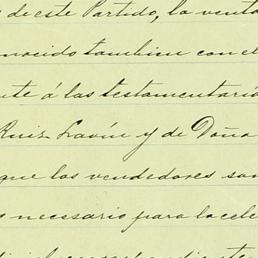 de este Partido, la venta
onocido tambien con el
nte á las testamentaria
Ruiz Lavín y de Doña
que los vendedores son
necesario para la cele